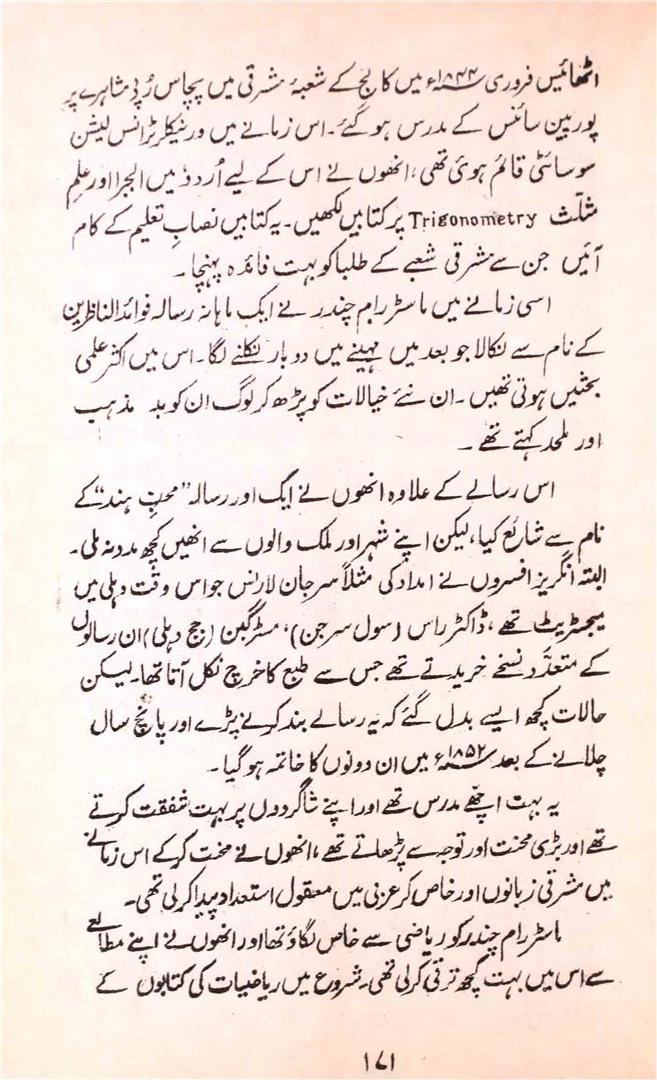 اٹھائیس فروری ۱۸۴۴ء میں کالج کے شعبۂ مشرقی میں پچاس رُپے مشاہرے پر
یورپین سائنس کے مدرس ہو گئے۔ اس زمانے میں ورنیکلر ٹرانس لیشن
سوسائٹی قائم ہوئی تھی، انھوں نے اس کے لیے اُردو میں الجبرا اور علمِ
مثلّث Trigonometry پر کتابیں لکھیں۔ یہ کتابیں نصابِ تعلیم کے کام
آئیں جن سے مشرقی شعبے کے طلبا کو بہت فائدہ پہنچا۔
اسی زمانے میں ماسٹر رام چندر نے ایک ماہانہ رسالہ فوائدالناظرین
کے نام سے نکالا جو بعد میں مہینے میں دو بار نکلنے لگا۔ اس میں اکثر علمی
بحثیں ہوتی تھیں۔ ان نئے خیالات کو پڑھ کر لوگ ان کو بد مذہب
اور ملحد کہتے تھے۔
اس رسالے کے علاوہ انھوں نے ایک اور رسالہ ”محبِّ ہند“ کے
نام سے شائع کیا، لیکن اپنے شہر اور ملک والوں سے انھیں کچھ مدد نہ ملی۔
البتہ انگریز افسروں نے امداد کی مثلاً سرجان لارنس جو اس وقت دہلی میں
میجسٹریٹ تھے، ڈاکٹر راس (سول سرجن)، مسٹر گبن (جج دہلی) ان رسالوں
کے متعدّد نسخے خریدتے تھے جس سے طبع کا خرچ نکل آتا تھا۔ لیکن
حالات کچھ ایسے بدل گئے کہ یہ رسالے بند کرنے پڑے اور پانچ سال
چلانے کے بعد ۱۸۵۲ء میں ان دونوں کا خاتمہ ہو گیا۔
یہ بہت اچھے مدرس تھے اور اپنے شاگردوں پر بہت شفقت کرتے
تھے اور بڑی محنت اور توجہ سے پڑھاتے تھے، انھوں نے محنت کر کے اس زمانے
میں مشرقی زبانوں اور خاص کر عربی میں معقول استعداد پیدا کر لی تھی۔
ماسٹر رام چندر کو ریاضی سے خاص لگاؤ تھا اور انھوں نے اپنے مطالعے
سے اس میں بہت کچھ ترقی کر لی تھی۔ شروع میں ریاضیات کی کتابوں کے
۱۷۱